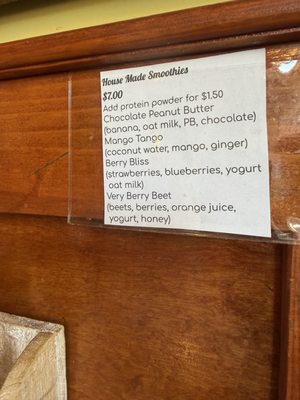 House Made Smoothies
$7.00
Add protein powder for $1.50
Chocolate Peanut Butter
(banana, oat milk, PB, chocolate)
Mango Tango
(coconut water, mango, ginger)
Berry Bliss
(strawberries, blueberries, yogurt
oat milk)
Very Berry Beet
(beets, berries, orange juice,
yogurt, honey)